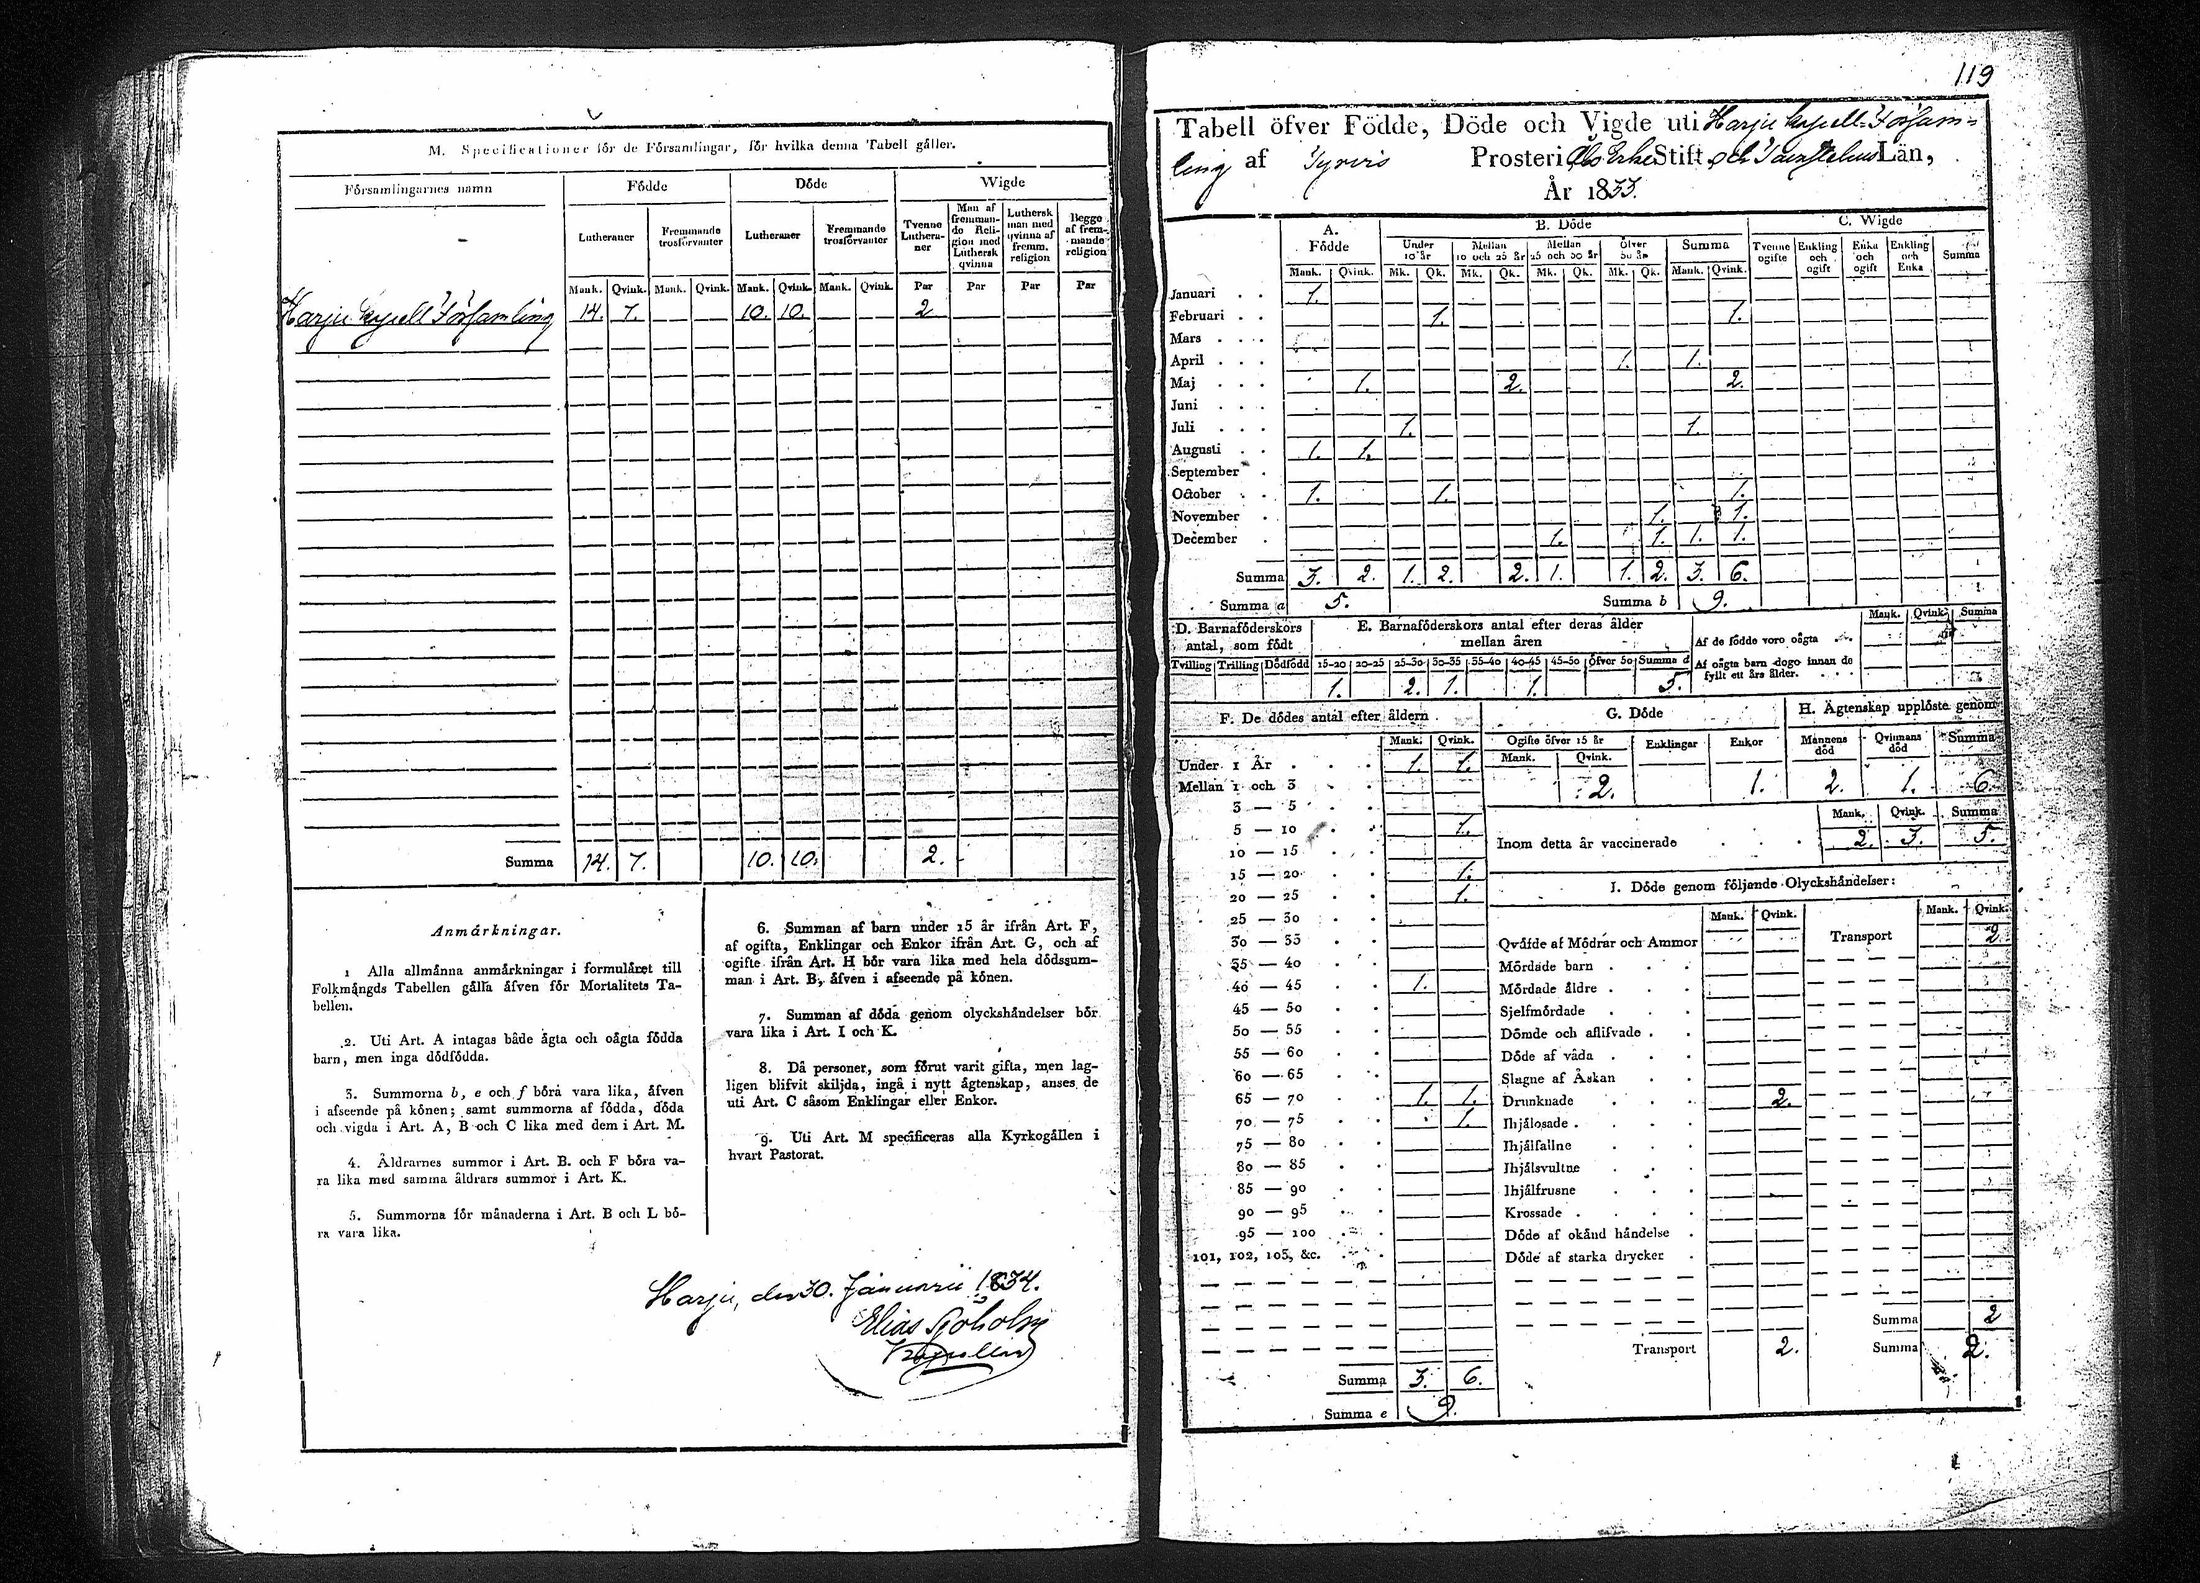 M. Specificationer för de Församlingar, för hvilka denna Tabell gäller.
Församlingarnes namn
Födde
Döde
Wigde
Lutheraner
Fremmande trosförvanter
Lutheraner
Fremmande trosförvanter
Tvenne Lutheraner
Man af fremmande Religion med Luthersk qvinna
Luthersk man med qvinna af fremm. religion
Begge af fremmande religion
Mank. Qvink. Mank. Qvink. Mank. Qvink. Mank. Qvink. Par Par Par Par
Harju kapell Församling 14. 7. 10. 10. 2
Summa 14. 7. 10. 10. 2.
Anmärkningar.
1 Alla allmänna anmärkningar i formuläret till
Folkmängds Tabellen gälla äfven för Mortalitets Ta-
bellen.
2. Uti Art. A intagas både ägta och oägta födda
barn, men inga dödfödda.
3. Summorna b, e och f böra vara lika, äfven
i afseende på könen; samt summorna af födda, döda
och vigda i Art. A, B och C lika med dem i Art. M.
4. Äldrarnes summor i Art. B. och F böra va-
ra lika med samma äldrars summor i Art. K.
5. Summorna för månaderna i Art. B och L bö-
ra vara lika.
6. Summan af barn under 15 år ifrån Art. F,
af ogifta, Enklingar och Enkor ifrån Art. G, och af
ogifte ifrån Art. H bör vara lika med hela dödssum-
man i Art. B, äfven i afseende på könen.
7. Summan af döda genom olyckshändelser bör
vara lika i Art. I och K.
8. Då personer, som förut varit gifta, men lag-
ligen blifvit skiljda, ingå i nytt ägtenskap, anses de
uti Art. C såsom Enklingar eller Enkor.
9. Uti Art. M specificeras alla Kyrkogällen i
hvart Pastorat.
Harju, den 30. Januarii 1834.
Elias Sjöholm
119
Tabell öfver Födde, Döde och Vigde uti Harju kapell-Försam-
ling af Tyrvis Prosteri Åbo Erke Stift och Tavastehus Län,
År 1833.
A. Födde
B. Döde
C. Wigde
Under 10 år
Mellan 10 och 25 år
Mellan 25 och 50 år
Öfver 50 år
Summa
Tvenne ogifte
Enkling och ogift
Enka och ogift
Enkling och Enka
Summa
Mank. Qvink. Mk. Qk. Mk. Qk. Mk. Qk. Mk. Qk. Mank. Qvink.
Januari 1.
Februari 1. 1.
Mars
April 1. 1.
Maj 1. 2. 2.
Juni
Juli 1. 1.
Augusti 1. 1.
September
October 1. 1. 1.
November 1. 1.
December 1. 1. 1. 1.
Summa 3. 2. 1. 2. 2. 1. 1. 2. 3. 6.
Summa a 5. Summa b 9.
D. Barnaföderskors antal, som födt
Tvilling Trilling Dödfödd
E. Barnaföderskors antal efter deras ålder mellan åren
15-20 20-25 25-30 30-35 35-40 40-45 45-50 Öfver 50 Summa d
1. 2. 1. 1. 5.
Mank. Qvink. Summa
Af de födde voro oägta
Af oägta barn dogo innan de
fyllt ett års ålder.
F. De dödes antal efter åldern
Mank. Qvink.
Under 1 År 1. 1.
Mellan 1 och 3
3 — 5
5 — 10 1.
10 — 15
15 — 20 1.
20 — 25 1.
25 — 30
30 — 35
35 — 40
40 — 45 1.
45 — 50
50 — 55
55 — 60
60 — 65
65 — 70 1. 1.
70 — 75 1.
75 — 80
80 — 85
85 — 90
90 — 95
95 — 100
101, 102, 103, &c.
Summa 3. 6.
Summa e 9.
G. Döde
Ogifte öfver 15 år
Mank. Qvink.
Enklingar
Enkor
2. 1.
H. Ägtenskap upplöste genom
Männens död
Qvinnans död
Summa
2. 1. 6.
Mank. Qvink. Summa
Inom detta år vaccinerade 2. 3. 5.
I. Döde genom följande Olyckshändelser:
Mank. Qvink.
Qväfde af Mödrar och Ammor
Mördade barn
Mördade äldre
Sjelfmördade
Dömde och aflifvade
Döde af våda
Slagne af Åskan
Drunknade 2.
Ihjälosade
Ihjälfallne
Ihjälsvultne
Ihjälfrusne
Krossade
Döde af okänd händelse
Döde af starka drycker
Transport 2.
Mank. Qvink.
Transport 2
Summa 2
Summa 2.